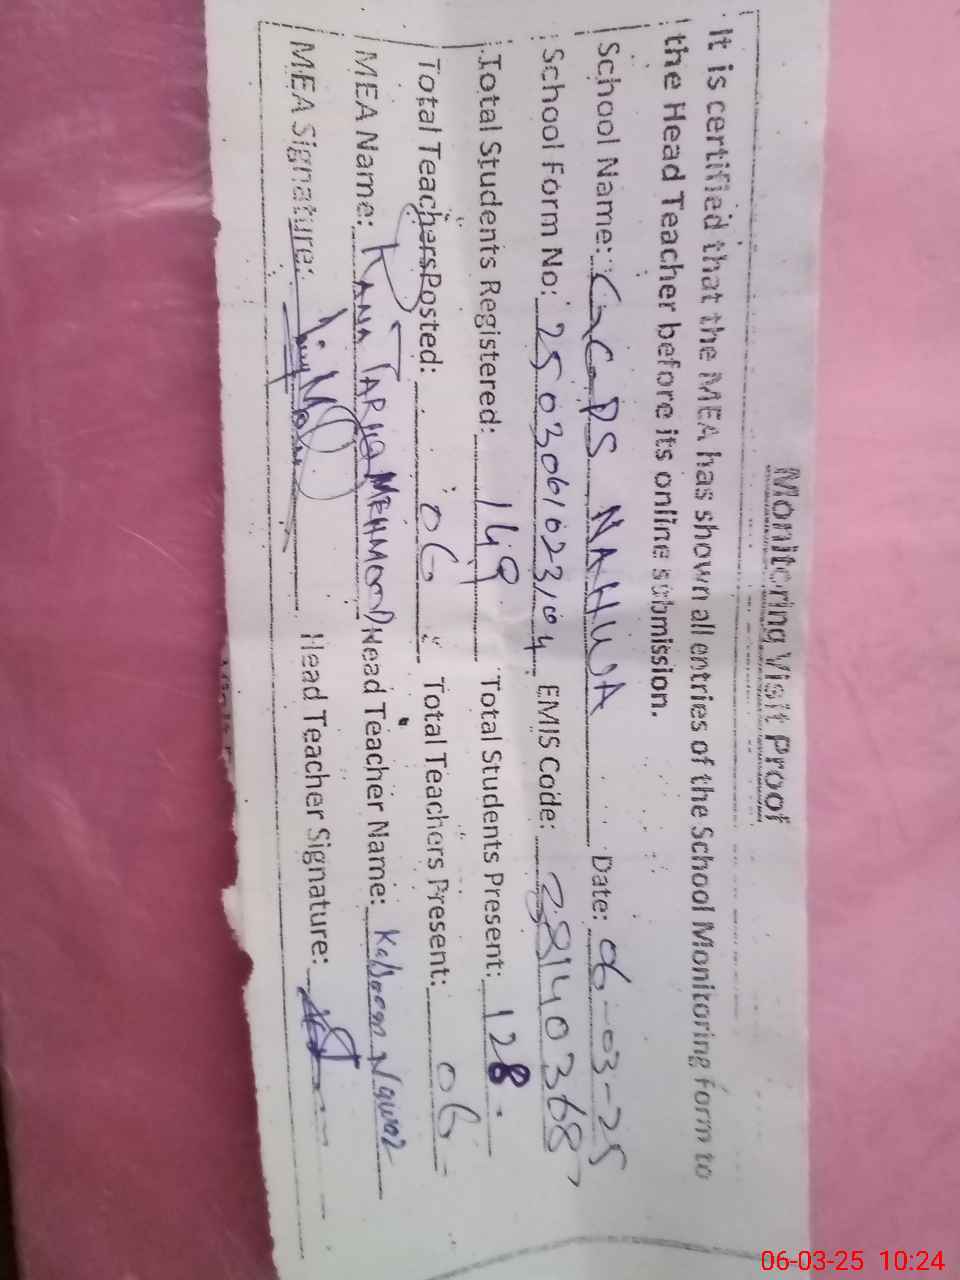 Monitoring Visit Proof
It is certified that the MEA has shown all entries of the School Monitoring form to
the Head Teacher before its online submission.
School Name: GGPS NAHUA Date: 06-03-25
School Form No: 2503061023104 EMIS Code: 38140368
Total Students Registered: 149 Total Students Present: 128
Total Teachers Posted: 06 Total Teachers Present: 06
MEA Name: RANA TARIQ MEHMOOD Head Teacher Name: Kalsoom
MEA Signature: Head Teacher Signature:
06-03-25 10:24